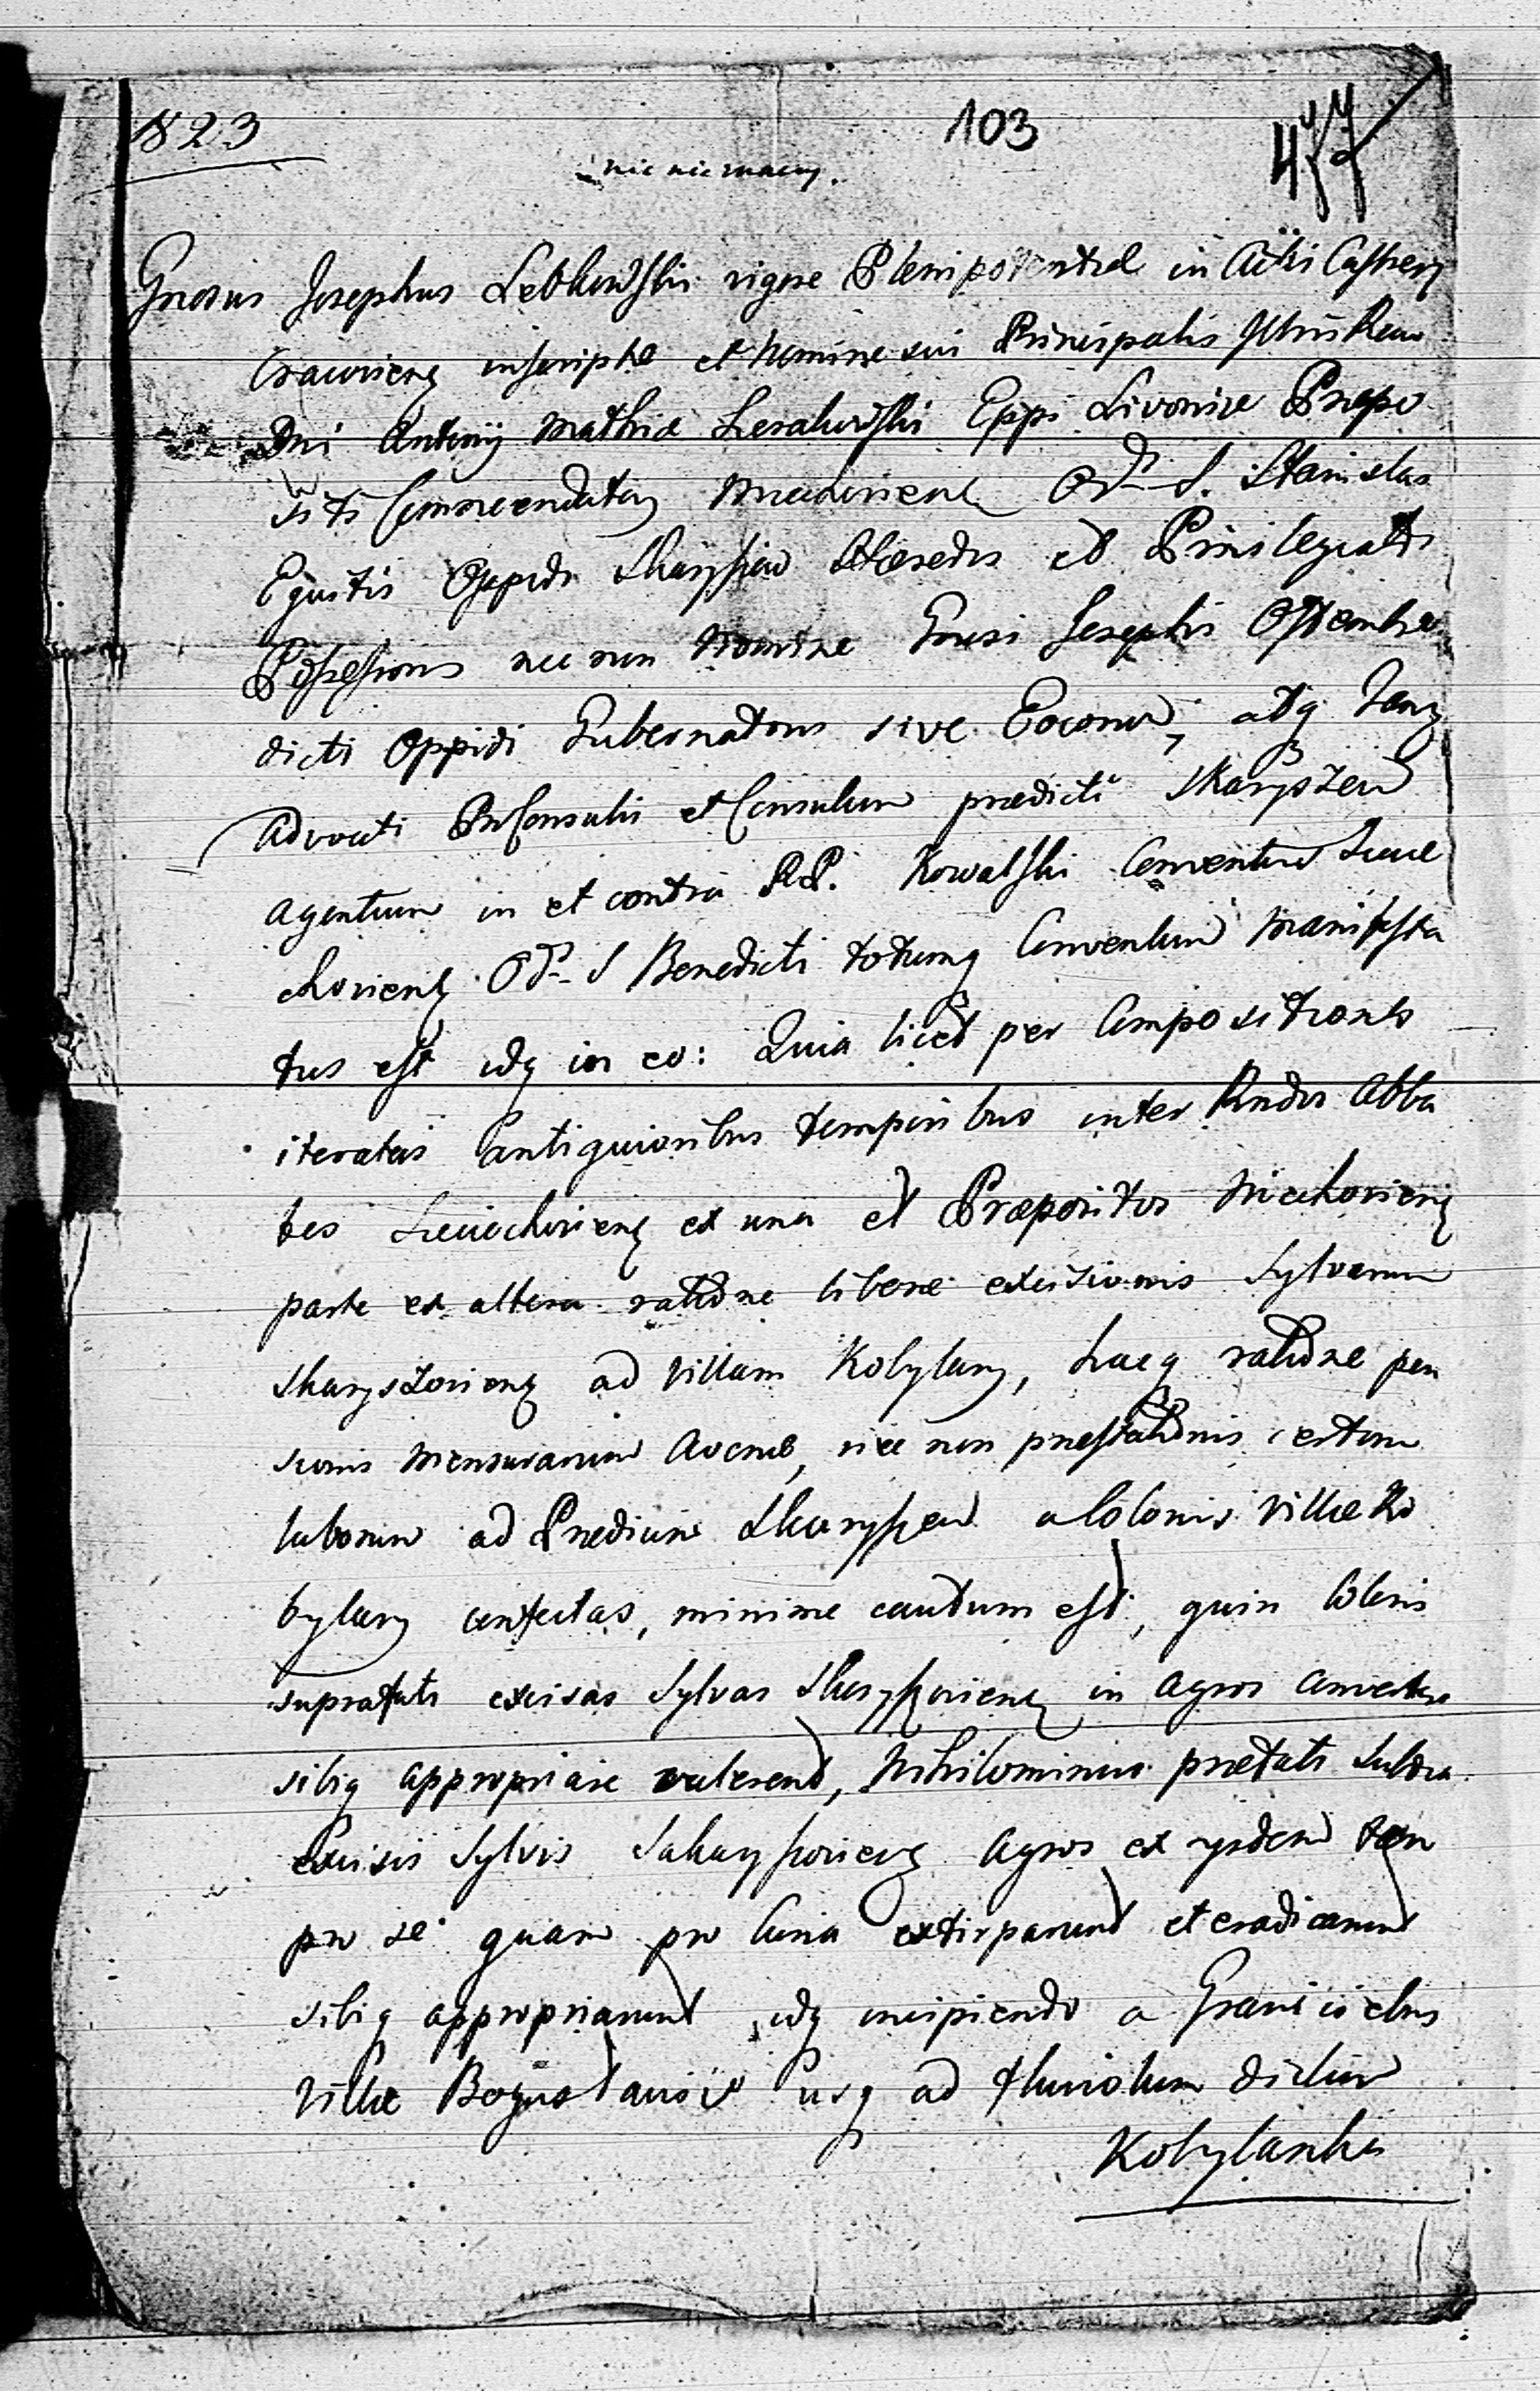 1823
103
477
nic nie znaczy.
Gnosus Josephus Lebkowski vigore Plenipotentiæ in Actis Castren
Cracovien inscriptæ et Nomine sui Principalis Illmi Rem
Dni Antonij Mathiæ Sierakowski Eppi Livoniæ Præpo
siti Commendatarij Miechovien Ord. S. Stanislai
Equitis Oppidi Skaryszew Hæredis et Privilegiati
Possessoris nec non Nomine Gnosi Josephi
dicti Oppidi Gubernatoris sive Economi, atq
Advocati ProConsulis et Consulum prædicti Skaryszew
agentium in et contra R.P. Kowalski Conventum Sieie
choviens Ord. S Benedicti totumq Conventum manifesta
tus est idq in eo: Quia licet per Compositiones
iteratas antiquioribus temporibus inter Rndos Abba
tes Sieciechovien ex una et Præpositos Miechovien
parte ex altera ratione liberæ excisionis Sylvarum
Skaryszovien ad Villam Kobylany, hacq ratione pen
sionis Mensurarum Avenæ, nec non præstationis certorum
laborum ad Prædium Skaryszew a Colonis Villæ Ko
bylany confectas, minime cautum est, quin Coloni
suprafati excisas Sylvas Skaryszovien in Agros convertere
sibiq appropriare valerent, Nihilominus præfati Subdi
Excisis Sylvis Skaryszovien Agros ex ijsdem tam
pro se quam pro Curia extirparunt et eradicarunt
sibiq appropriarunt idq incipiendo a Graniciebus
Villæ Bogusławice usq ad fluviolum dictum
Kobylanka